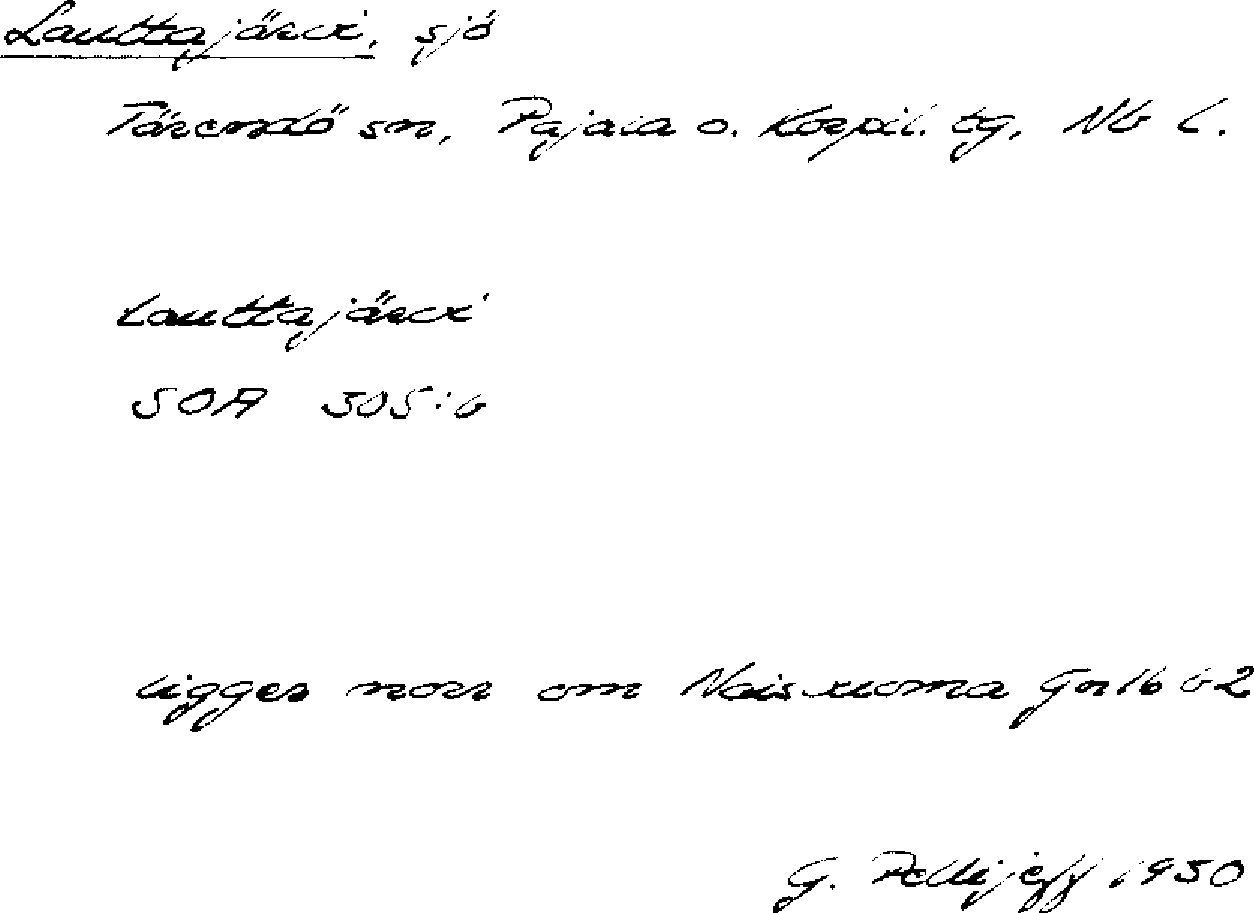 Lauttajärvi, sjö
Tärendö sn, Pajala o. Korpil. tg, Nb l.
Lauttajärvi
SOA 305:6
ligger norr om Naisvuoma Gn 16 b2
G. Pellijeff 1950